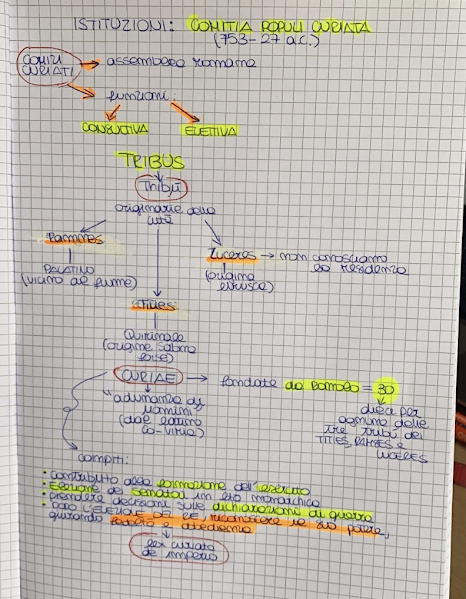 ISTITUZIONI: COMITIA POPULI CURIATA
(753-27 a.C.)
COMIZI
CURIATI → assemblea romana
funzioni:
CONSULTIVA ELETTIVA
TRIBUS
Tribù
originarie della
città
Ramnes
PALATINO
(vicino al fiume)
Luceres → non conosciamo
la residenza
(origine
etrusca)
Tities:
Quirinale
(origine sabina
CURIAE → fondate da Romolo = 30
"adunanza di
uomini"
(dal latino
co-viria)
dieci per
ognuna delle
tre tribù dei
TITIES, RAMNES e
LUCERES
compiti:
• contributo alla formazione dell'esercito
• Elezione dei senatori in età monarchica
• prendere decisioni sulle dichiarazioni di guerra
• dopo L'ELEZIONE DEL RE, riconoscere il suo potere,
giurando fedeltà e obbedienza
lex curiata
de imperio